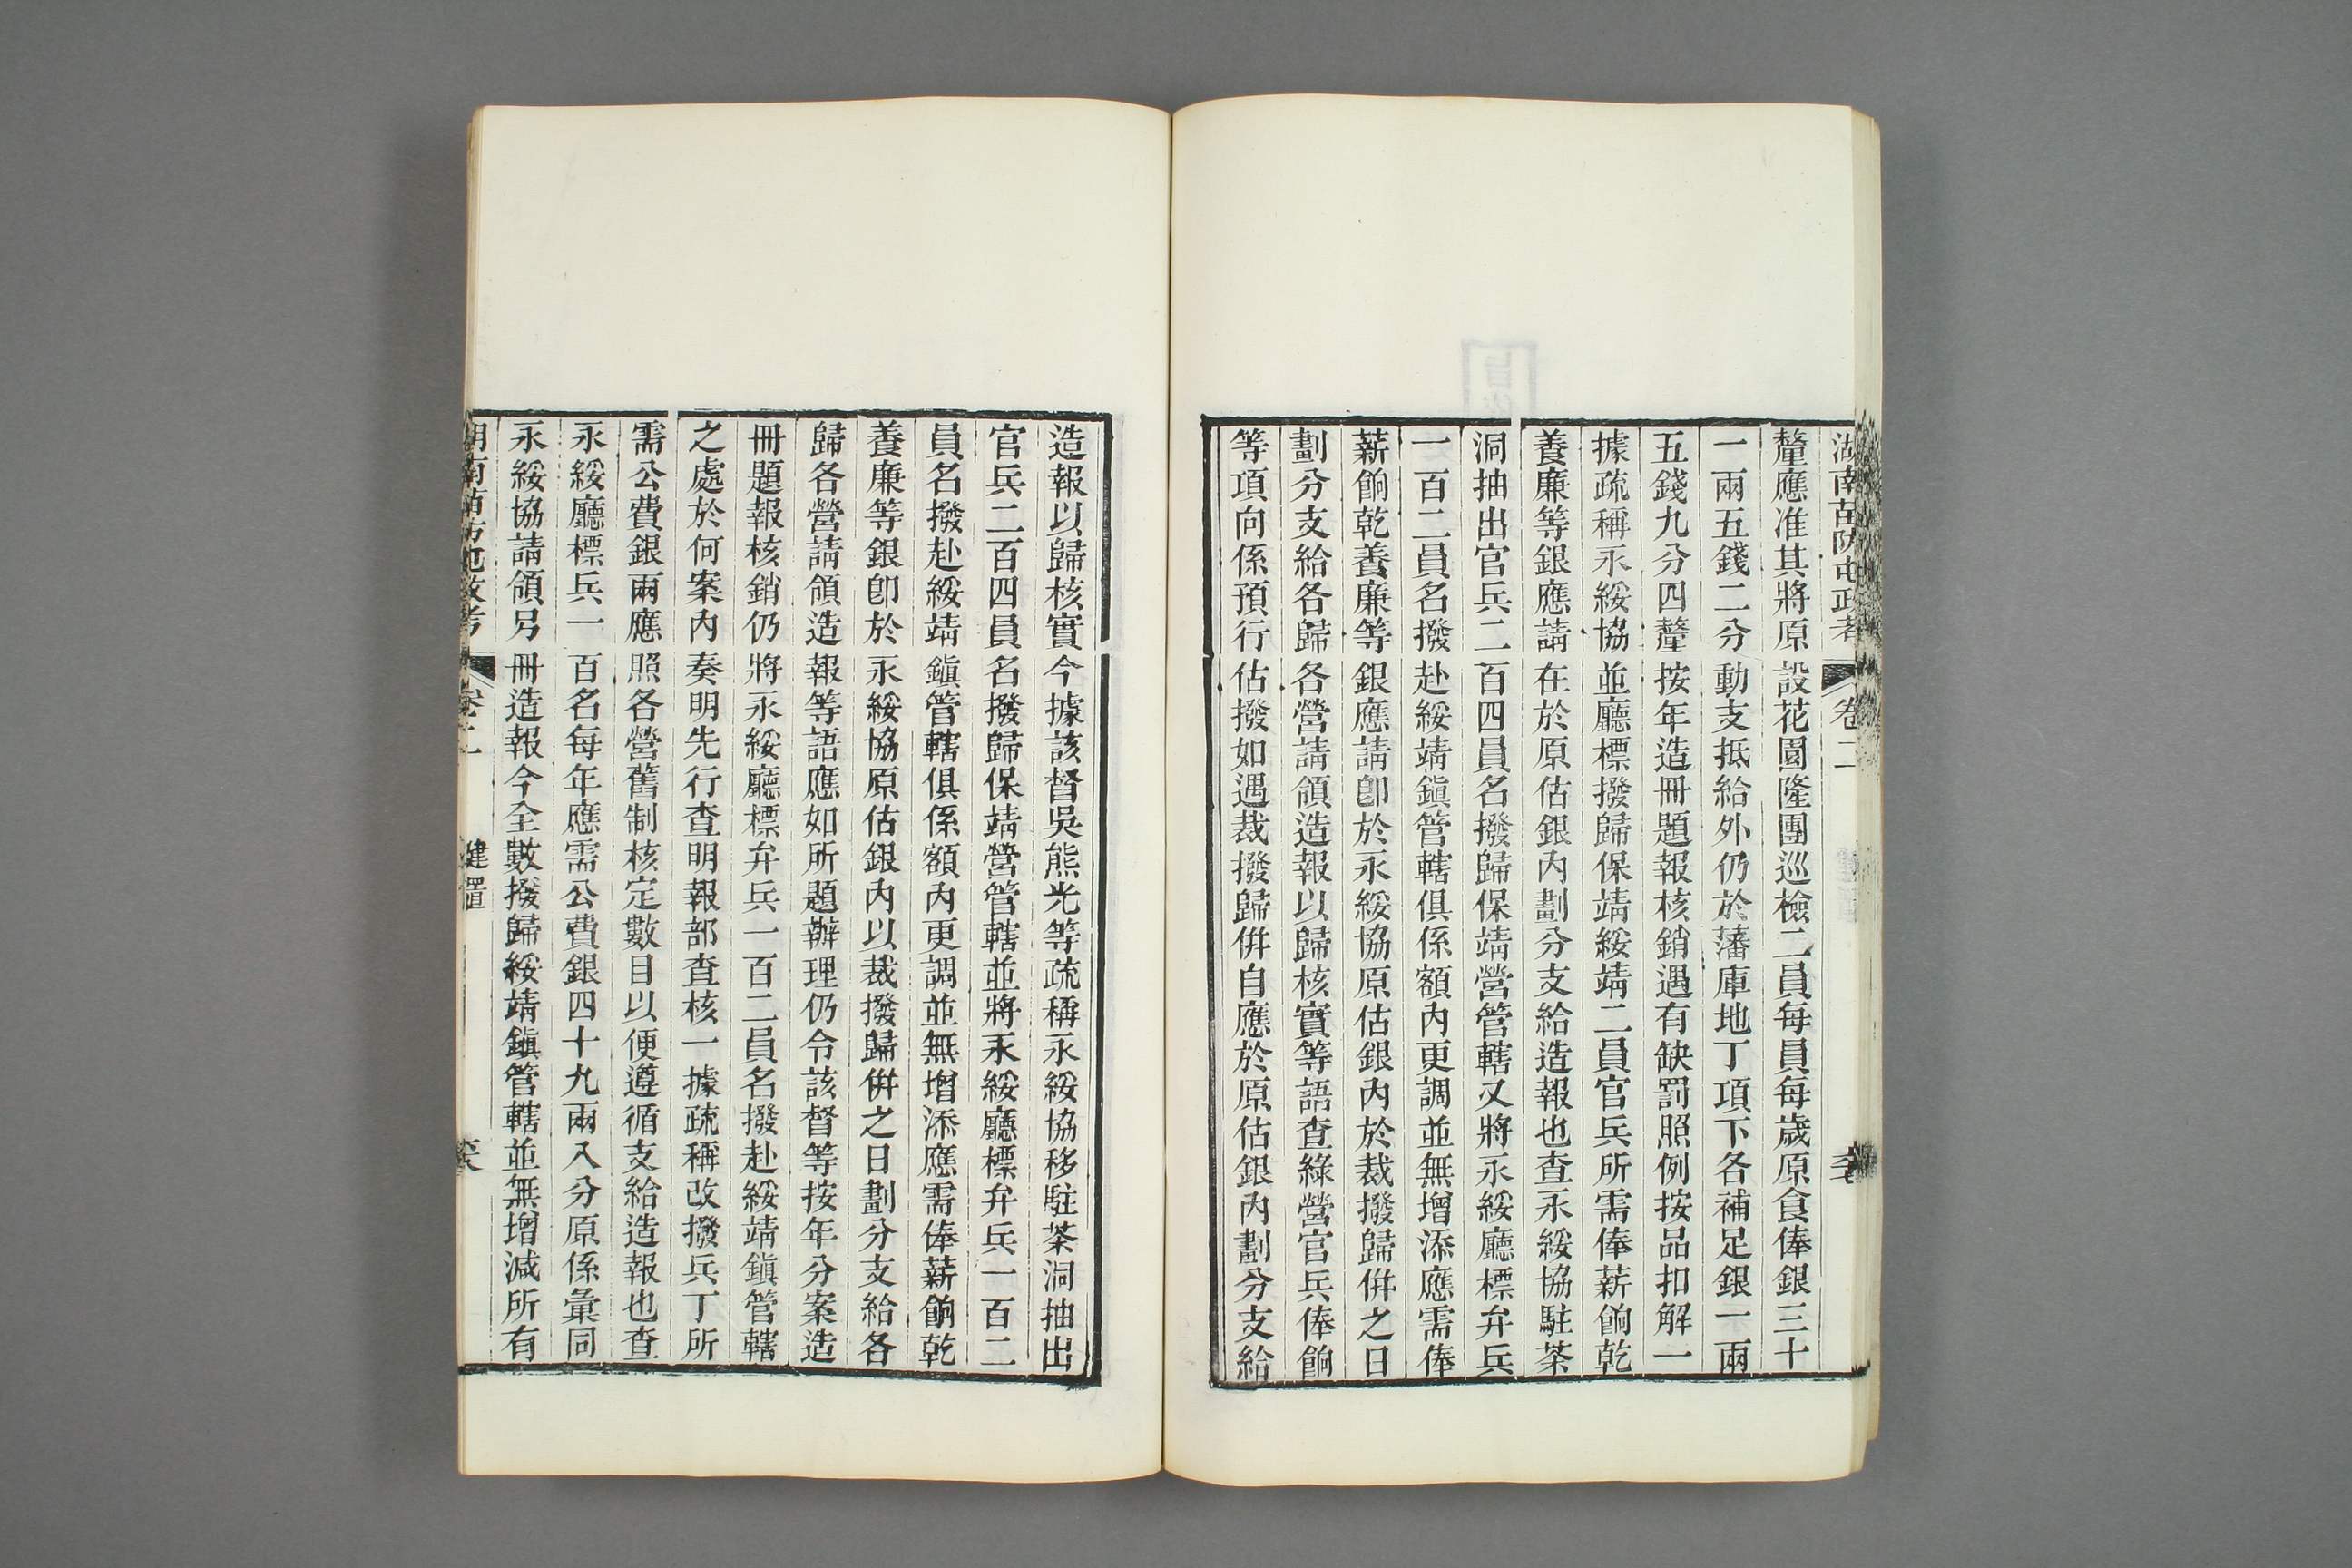 湖南苗防屯政考 卷二
釐應准其將原設花園隆團巡檢二員每員每歲原食俸銀三十
一兩五錢二分動支抵給外仍於藩庫地丁項下各補足銀一兩
五錢九分四釐按年造冊題報核銷遇有缺罰照例按品扣解一
據疏稱永綏協並廳標撥歸保靖綏靖二員官兵所需俸薪餉乾
養廉等銀應請在於原估銀內劃分支給造報也查永綏協駐茶
洞抽出官兵二百四員名撥歸保靖營管轄又將永綏廳標弁兵
一百二員名撥赴綏靖鎭管轄俱係額內更調並無增添應需俸
薪餉乾養廉等銀應請卽於永綏協原估銀內於裁撥歸併之日
劃分支給各歸各營請領造報以歸核實等語查綠營官兵俸餉
等項向係預行估撥如遇裁撥歸併自應於原估銀內劃分支給
造報以歸核實今據該督吳熊光等疏稱永綏協移駐茶洞抽出
官兵二百四員名撥歸保靖營管轄並將永綏廳標弁兵一百二
員名撥赴綏靖鎭管轄俱係額內更調並無增添應需俸薪餉乾
養廉等銀卽於永綏協原估銀內以裁撥歸併之日劃分支給各
歸各營請領造報等語應如所題辦理仍令該督等按年分案造
冊題報核銷仍將永綏廳標弁兵一百二員名撥赴綏靖鎭管轄
之處於何案內奏明先行查明報部查核一據疏稱改撥兵丁所
需公費銀兩應照各營舊制核定數目以便遵循支給造報也查
永綏廳標兵一百名每年應需公費銀四十九兩八分原係彙同
永綏協請領另冊造報今全數撥歸綏靖鎭管轄並無增減所有
湖南苗防屯政考 卷二 建置